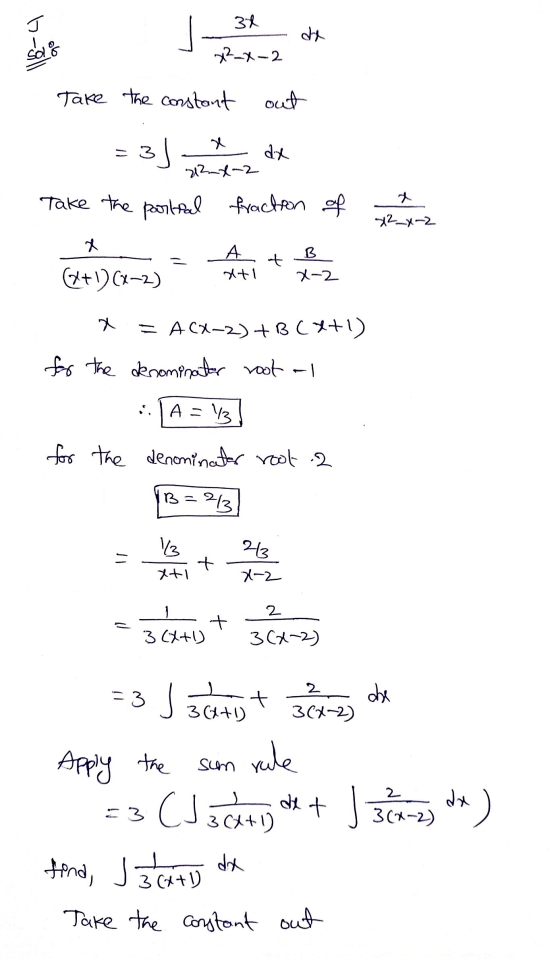 J
sol:
∫ 3x/(x²-x-2) dx
Take the constant out
= 3∫ x/(x²-x-2) dx
Take the partial fraction of x/(x²-x-2)
x/((x+1)(x-2)) = A/(x+1) + B/(x-2)
x = A(x-2)+B(x+1)
for the denominator root -1
∴ A = 1/3
for the denominator root 2
B = 2/3
= (1/3)/(x+1) + (2/3)/(x-2)
= 1/(3(x+1)) + 2/(3(x-2))
= 3 ∫ 1/(3(x+1)) + 2/(3(x-2)) dx
Apply the sum rule
= 3 (∫ 1/(3(x+1)) dx + ∫ 2/(3(x-2)) dx)
find, ∫ 1/(3(x+1)) dx
Take the constant out